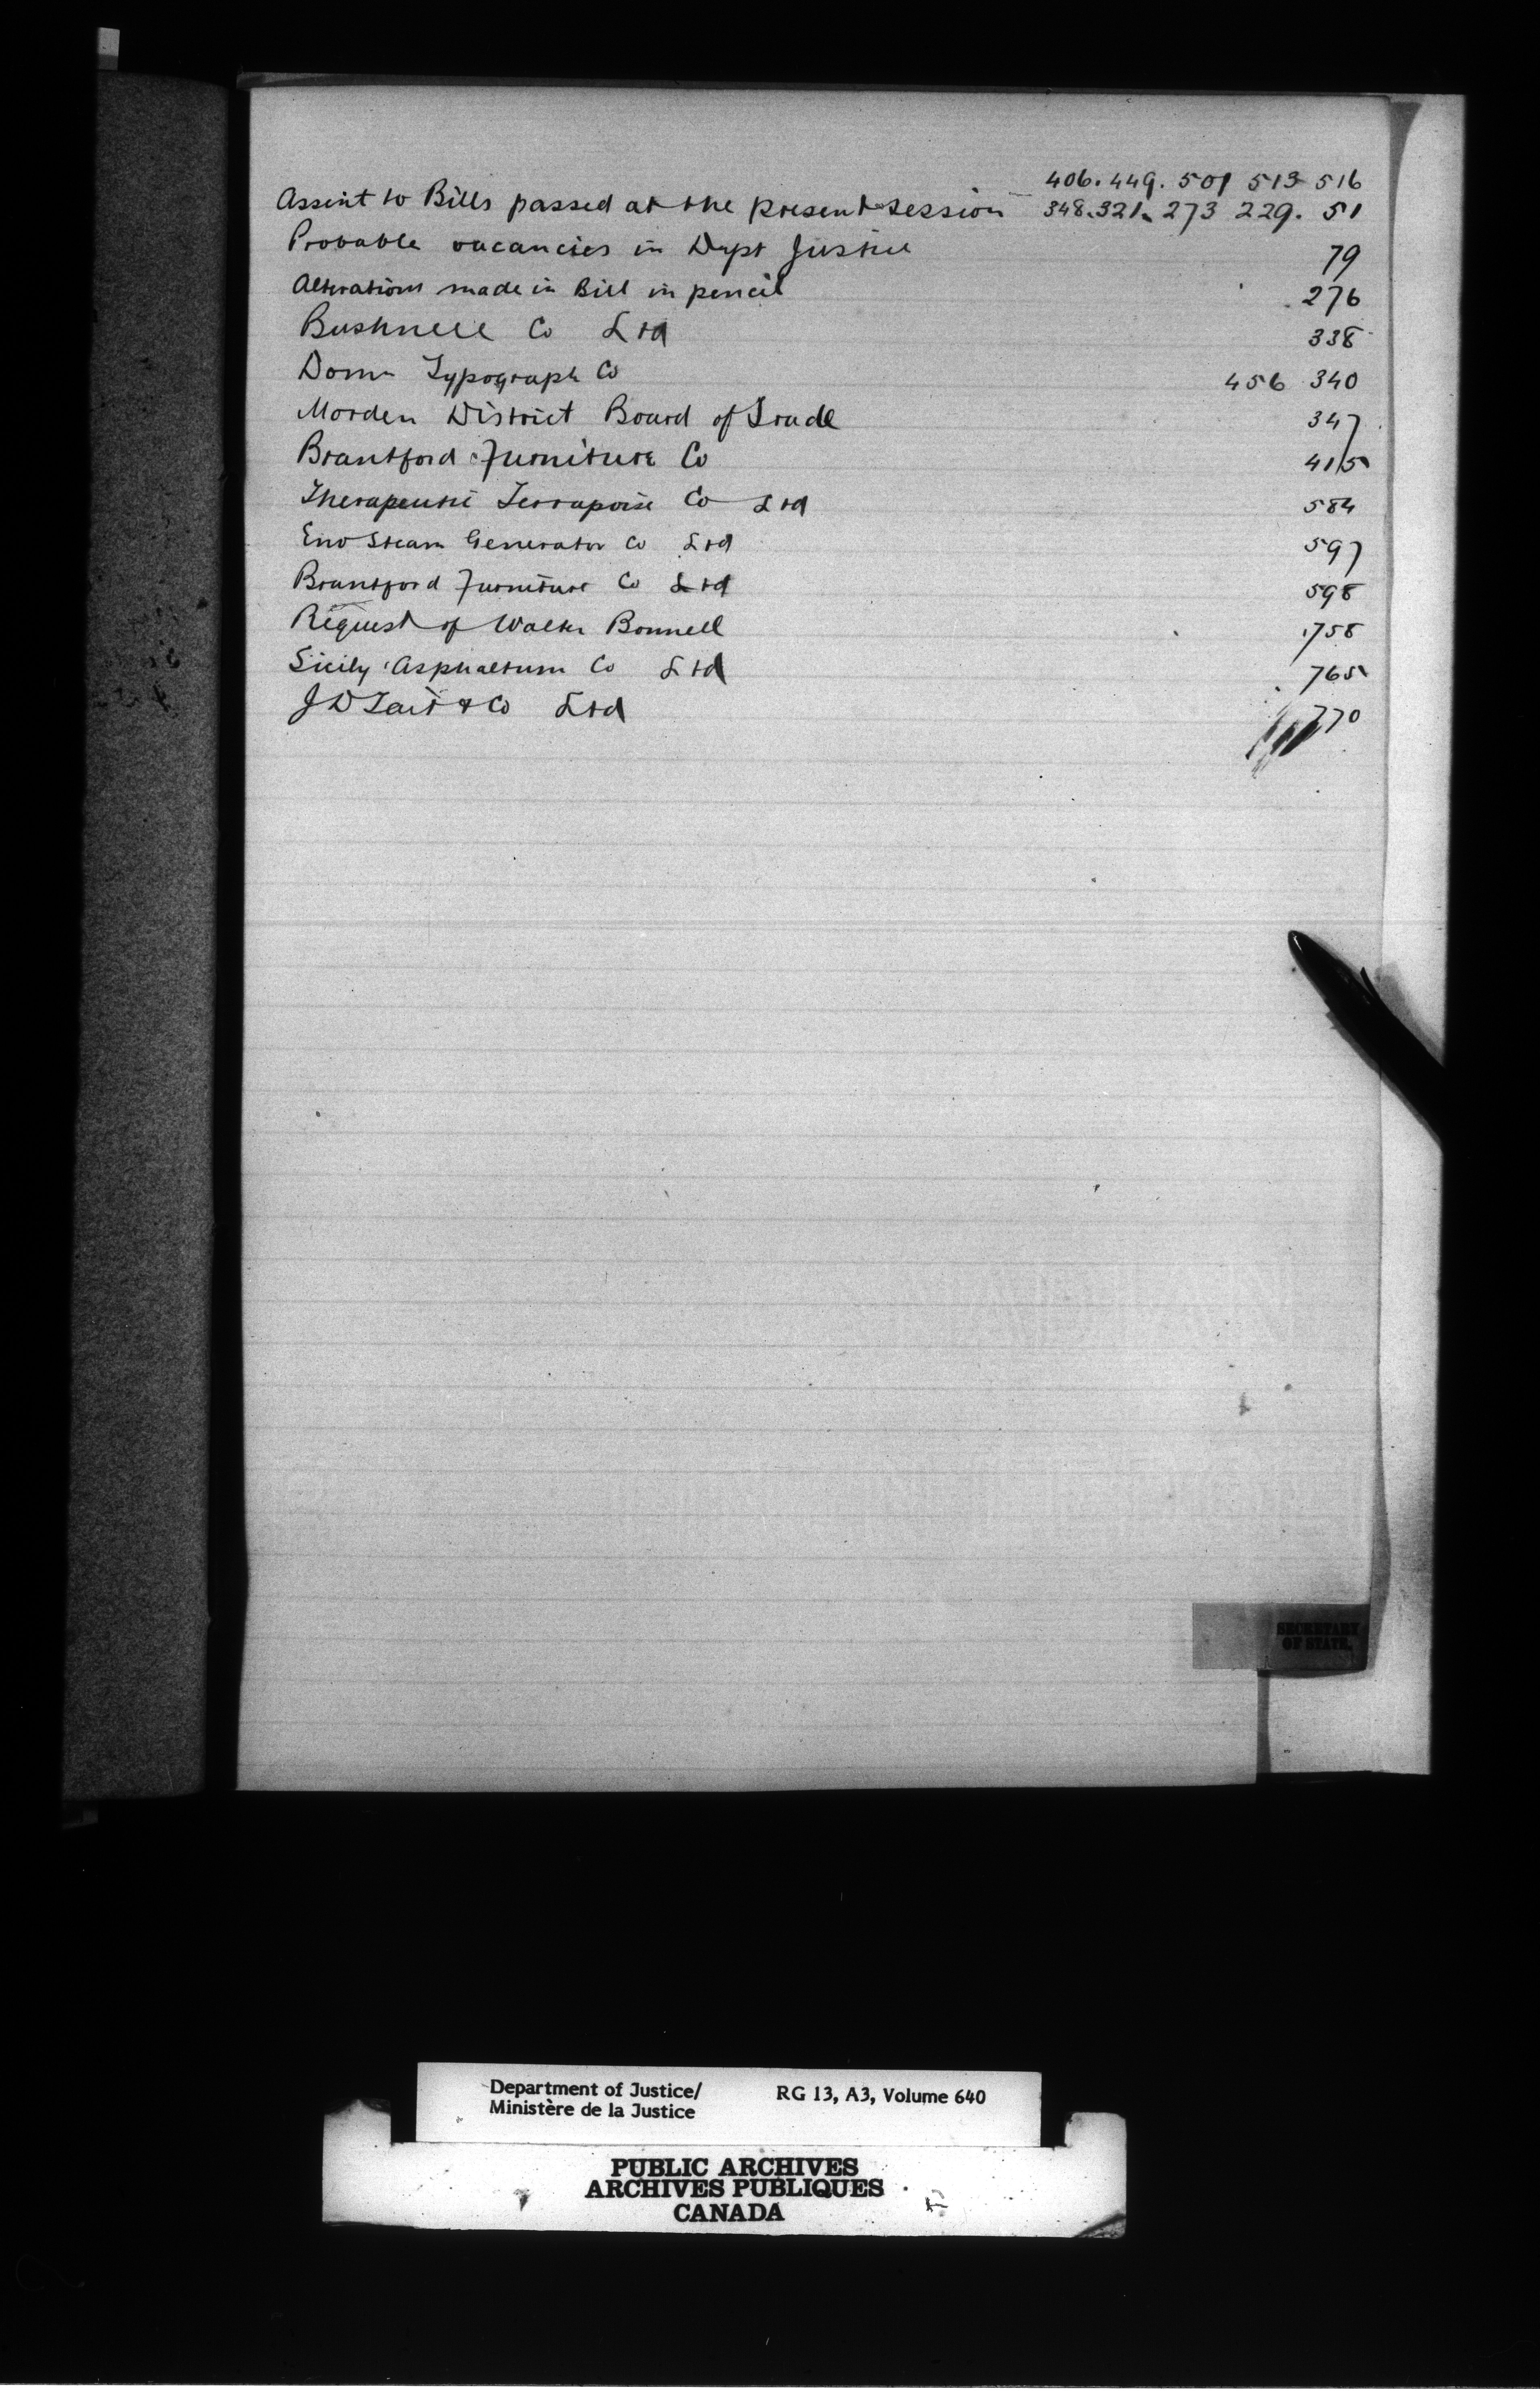 406. 449. 501 513 516
Assint to Bills passed at the present session 348. 321. 273 229. 51
Probable vacancies in Dept Justice 79
Alterations made in Bill in pencil 276
Bushnell Co Ltd 338
Domn Typograph Co 456 340
Morden District Board of Trade 347
Brantford Furniture Co 415
Therapeutic Co Ltd 584
Eno Steam Generator Co Ltd 597
Brantford Furniture Co Ltd 598
Request of Walter Bonnell 758
Sicily Asphaltum Co Ltd 765
J D Tait & Co Ltd 770
SECRETARY
OF STATE.
Department of Justice/ RG 13, A3, Volume 640
Ministère de la Justice
PUBLIC ARCHIVES
ARCHIVES PUBLIQUES
CANADA